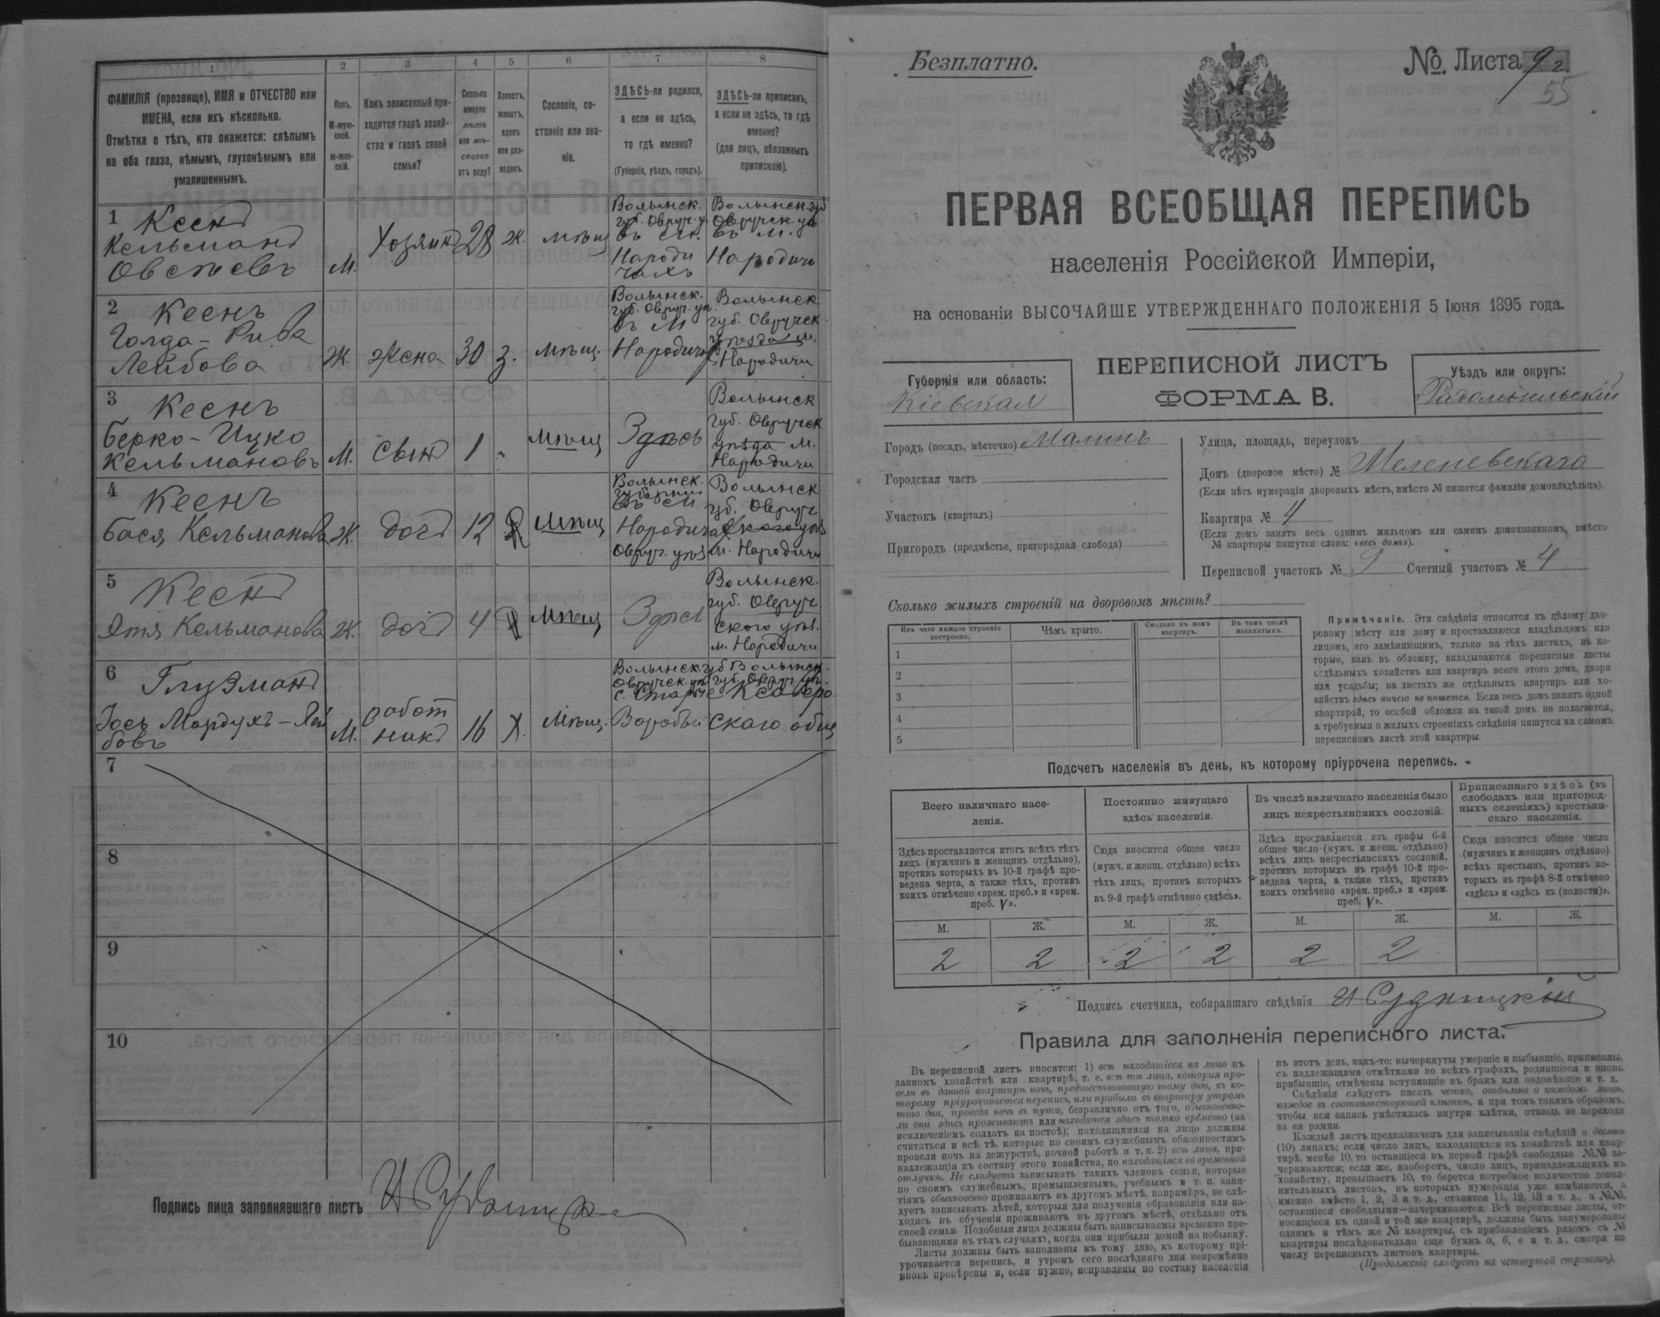 1
2
3
4
5
6
7
8
ФАМИЛІЯ (прозвище), ИМЯ и ОТЧЕСТВО или
ИМЕНА, если ихъ нѣсколько.
Отмѣтка о тѣхъ, кто окажется: слѣпымъ
на оба глаза, нѣмымъ, глухонѣмымъ или
умалишеннымъ.
Полъ.
М-муж-
ской.
ж-жен-
скій.
Какъ записанный при-
ходится главѣ хозяй-
ства и главѣ своей
семьи?
Сколько
минуло
лѣтъ
или мѣ-
сяцевъ
отъ роду?
Холостъ,
женатъ,
вдовъ
или раз-
веденъ.
Сословіе, со-
стояніе или зва-
ніе.
ЗДѢСЬ-ли родился,
а если не здѣсь,
то гдѣ именно?
(Губернія, уѣздъ, городъ).
ЗДѢСЬ-ли приписанъ,
а если не здѣсь, то гдѣ
именно?
(для лицъ, обязанныхъ
припискою).
1
Кеснъ
Кельманъ
Овсѣевъ
М.
Хозяинъ
28
ж.
мѣщ
Волынск.
губ. Овруч. у.
въ м.
Народи
чахъ
Волынск. губ
Овручск. уѣ
въ м.
Народичъ
2
Кеснъ
Голда-Рива
Лейбова
Ж
жена
30
з.
мѣщ.
Волынск.
губ. Овруч. уѣ.
въ м
Народичи
Волынск
губ. Овручск
уѣзда м.
Народичи
3
Кеснъ
Берко-Ицко
Кельмановъ
М.
сынъ
1
мѣщ
Здѣсь
Волынск
губ. Овручск
уѣзда м.
Народичи
4
Кеснъ
Бася Кельманова
Ж.
дочь
12
мѣщ
Волынск.
губерніи
въ м
Народичахъ
Овруч. уѣз
Волынск
губ. Овруч
скаго уѣз
м. Народичи
5
Кеснъ
Этя Кельманова
Ж.
дочь
4
мѣщ
Здѣсь
Волынск.
губ. Овруч
ского уѣз.
м. Народичи
6
Глузманъ
Іось Мордухъ-Лей
бовъ
М.
работ
никъ
16
Х.
мѣщ.
Волынск губ
Овручск. уѣз
с. Старые
Воробьи
Волынск.
губ. Овруч. уѣ.
Ксаверо
скаго общ
7
8
9
10
Подпись лица заполнявшаго листъ
Безплатно.
№. Листа 92
55
ПЕРВАЯ ВСЕОБЩАЯ ПЕРЕПИСЬ
населенія Россійской Имперіи,
на основаніи ВЫСОЧАЙШЕ УТВЕРЖДЕННАГО ПОЛОЖЕНІЯ 5 Іюня 1895 года.
Губернія или область:
Кіевская
ПЕРЕПИСНОЙ ЛИСТЪ
ФОРМА В.
Уѣздъ или округъ:
Радомысльскій
Городъ (посадъ, мѣстечко) Малинъ
Городская часть
Участокъ (кварталъ)
Пригородъ (предмѣстье, пригородная слобода)
Улица, площадь, переулокъ
Домъ (дворовое мѣсто) № Мелепевскаго
(Если нѣтъ нумераціи дворовыхъ мѣстъ, вмѣсто № пишется фамилія домовладѣльца).
Квартира № 4
(Если домъ занятъ весь однимъ жильцомъ или самимъ домохозяиномъ, вмѣсто
№ квартиры пишутся слова: «весь домъ»).
Переписной участокъ № 9 Счетный участокъ № 4
Сколько жилыхъ строеній на дворовомъ мѣстѣ?
Изъ чего каждое строеніе
построено.
Чѣмъ крыто.
Сколько въ немъ
квартиръ.
Въ томъ числѣ
незанятыхъ.
1
2
3
4
5
Примѣчаніе. Эти свѣдѣнія относятся къ цѣлому дво-
ровому мѣсту или дому и проставляются владѣльцемъ или
лицомъ, его замѣняющимъ, только на тѣхъ листахъ, въ ко-
торые, какъ въ обложку, вкладываются переписные листы
отдѣльныхъ хозяйствъ или квартиръ всего этого дома, двора
или усадьбы; на листахъ же отдѣльныхъ квартиръ или хо-
зяйствъ здѣсь ничего не пишется. Если весь домъ занятъ одной
квартирой, то особой обложки на такой домъ не полагается,
а требуемыя о жилыхъ строеніяхъ свѣдѣнія пишутся на самомъ
переписномъ листѣ этой квартиры.
Подсчетъ населенія въ день, къ которому пріурочена перепись.
Всего наличнаго насе-
ленія.
Здѣсь проставляется итогъ всѣхъ тѣхъ
лицъ (мужчинъ и женщинъ отдѣльно),
противъ которыхъ въ 10-й графѣ про-
ведена черта, а также тѣхъ, противъ
коихъ отмѣчено «врем. преб.» и «врем.
преб. V».
Постоянно живущаго
здѣсь населенія.
Сюда вносится общее число
(мужч. и женщ. отдѣльно) всѣхъ
тѣхъ лицъ, противъ которыхъ
въ 9-й графѣ отмѣчено «здѣсь».
Въ числѣ наличнаго населенія было
лицъ некрестьянскихъ сословій.
Здѣсь проставляется изъ графы 6-й
общее число (мужч. и женщ. отдѣльно)
всѣхъ лицъ некрестьянскихъ сословій,
противъ которыхъ въ графѣ 10-й про-
ведена черта, а также тѣхъ, противъ
коихъ отмѣчено «врем. преб.» и «врем.
преб. V».
Приписаннаго здѣсь (въ
слободахъ или пригород-
ныхъ селеніяхъ) крестьян-
скаго населенія.
Сюда вносится общее число
(мужчинъ и женщинъ отдѣльно)
всѣхъ крестьянъ, противъ ко-
торыхъ въ графѣ 8-й отмѣчено
«здѣсь» и «здѣсь къ (волости)».
М. Ж. М. Ж. М. Ж. М. Ж.
2 2 2 2 2 2
Подпись счетчика, собиравшаго свѣдѣнія И Рудницкій
Правила для заполненія переписного листа.
Въ переписной листъ вносятся: 1) всѣ находящіеся на лицо въ
данномъ хозяйствѣ или квартирѣ, т. е. всѣ тѣ лица, которыя про-
вели въ данной квартирѣ ночь, предшествовавшую тому дню, къ ко-
торому пріурочивается перепись, или прибыли въ квартиру утромъ
того дня, проведя ночь въ пути, безразлично отъ того, обыкновенно-
ли они здѣсь проживаютъ или находятся здѣсь только временно (за
исключеніемъ солдатъ на постоѣ); находящимися на лицо должны
считаться и всѣ тѣ, которые по своимъ служебнымъ обязанностямъ
провели ночь на дежурствѣ, ночной работѣ и т. п. 2) всѣ лица, при-
надлежащія къ составу этого хозяйства, но находящіяся во временной
отлучкѣ. Не слѣдуетъ записывать такихъ членовъ семьи, которые
по своимъ служебнымъ, промышленнымъ, учебнымъ и т. п. заня-
тіямъ обыкновенно проживаютъ въ другомъ мѣстѣ, напримѣръ, не слѣ-
дуетъ записывать дѣтей, которыя для полученія образованія или на-
ходясь въ обученіи проживаютъ въ другомъ мѣстѣ, отдѣльно отъ
своей семьи. Подобныя лица должны быть записываемы временно пре-
бывающими въ тѣхъ случаяхъ, когда они прибыли домой на побывку.
Листы должны быть заполнены къ тому дню, къ которому прі-
урочивается перепись, и утромъ сего послѣдняго дня непремѣнно
вновь провѣрены и, если нужно, исправлены по составу населенія
въ этотъ день, какъ-то: вычеркнуты умершіе и выбывшіе, приписаны,
съ надлежащими отмѣтками во всѣхъ графахъ, родившіеся и вновь
прибывшіе, отмѣчены вступившіе въ бракъ или овдовѣвшіе и т. д.
Свѣдѣнія слѣдуетъ писать четко, отдѣльно о каждомъ лицѣ,
каждое въ соотвѣтствующей клѣткѣ, и при томъ такимъ образомъ,
чтобы вся запись умѣстилась внутри клѣтки, отнюдь не переходя
за ея рамки.
Каждый листъ предназначенъ для записыванія свѣдѣній о десяти
(10) лицахъ; если число лицъ, находящихся въ хозяйствѣ или квар-
тирѣ, менѣе 10, то оставшіеся въ первой графѣ свободные №№ за-
черкиваются; если же, наоборотъ, число лицъ, принадлежащихъ къ
хозяйству, превышаетъ 10, то берется потребное количество допол-
нительныхъ листовъ, въ которыхъ нумерація уже измѣняется, а
именно вмѣсто 1, 2, 3 и т. д., ставится 11, 12, 13 и т. д., а №№,
оставшіеся свободными—зачеркиваются. Всѣ переписные листы, от-
носящіеся къ одной и той же квартирѣ, должны быть занумерованы
однимъ и тѣмъ же № квартиры, съ прибавленіемъ рядомъ съ №
квартиры послѣдовательно еще буквъ а, б, в и т. д., смотря по
числу переписныхъ листовъ квартиры.
(Продолженіе слѣдуетъ на четвертой страницѣ).